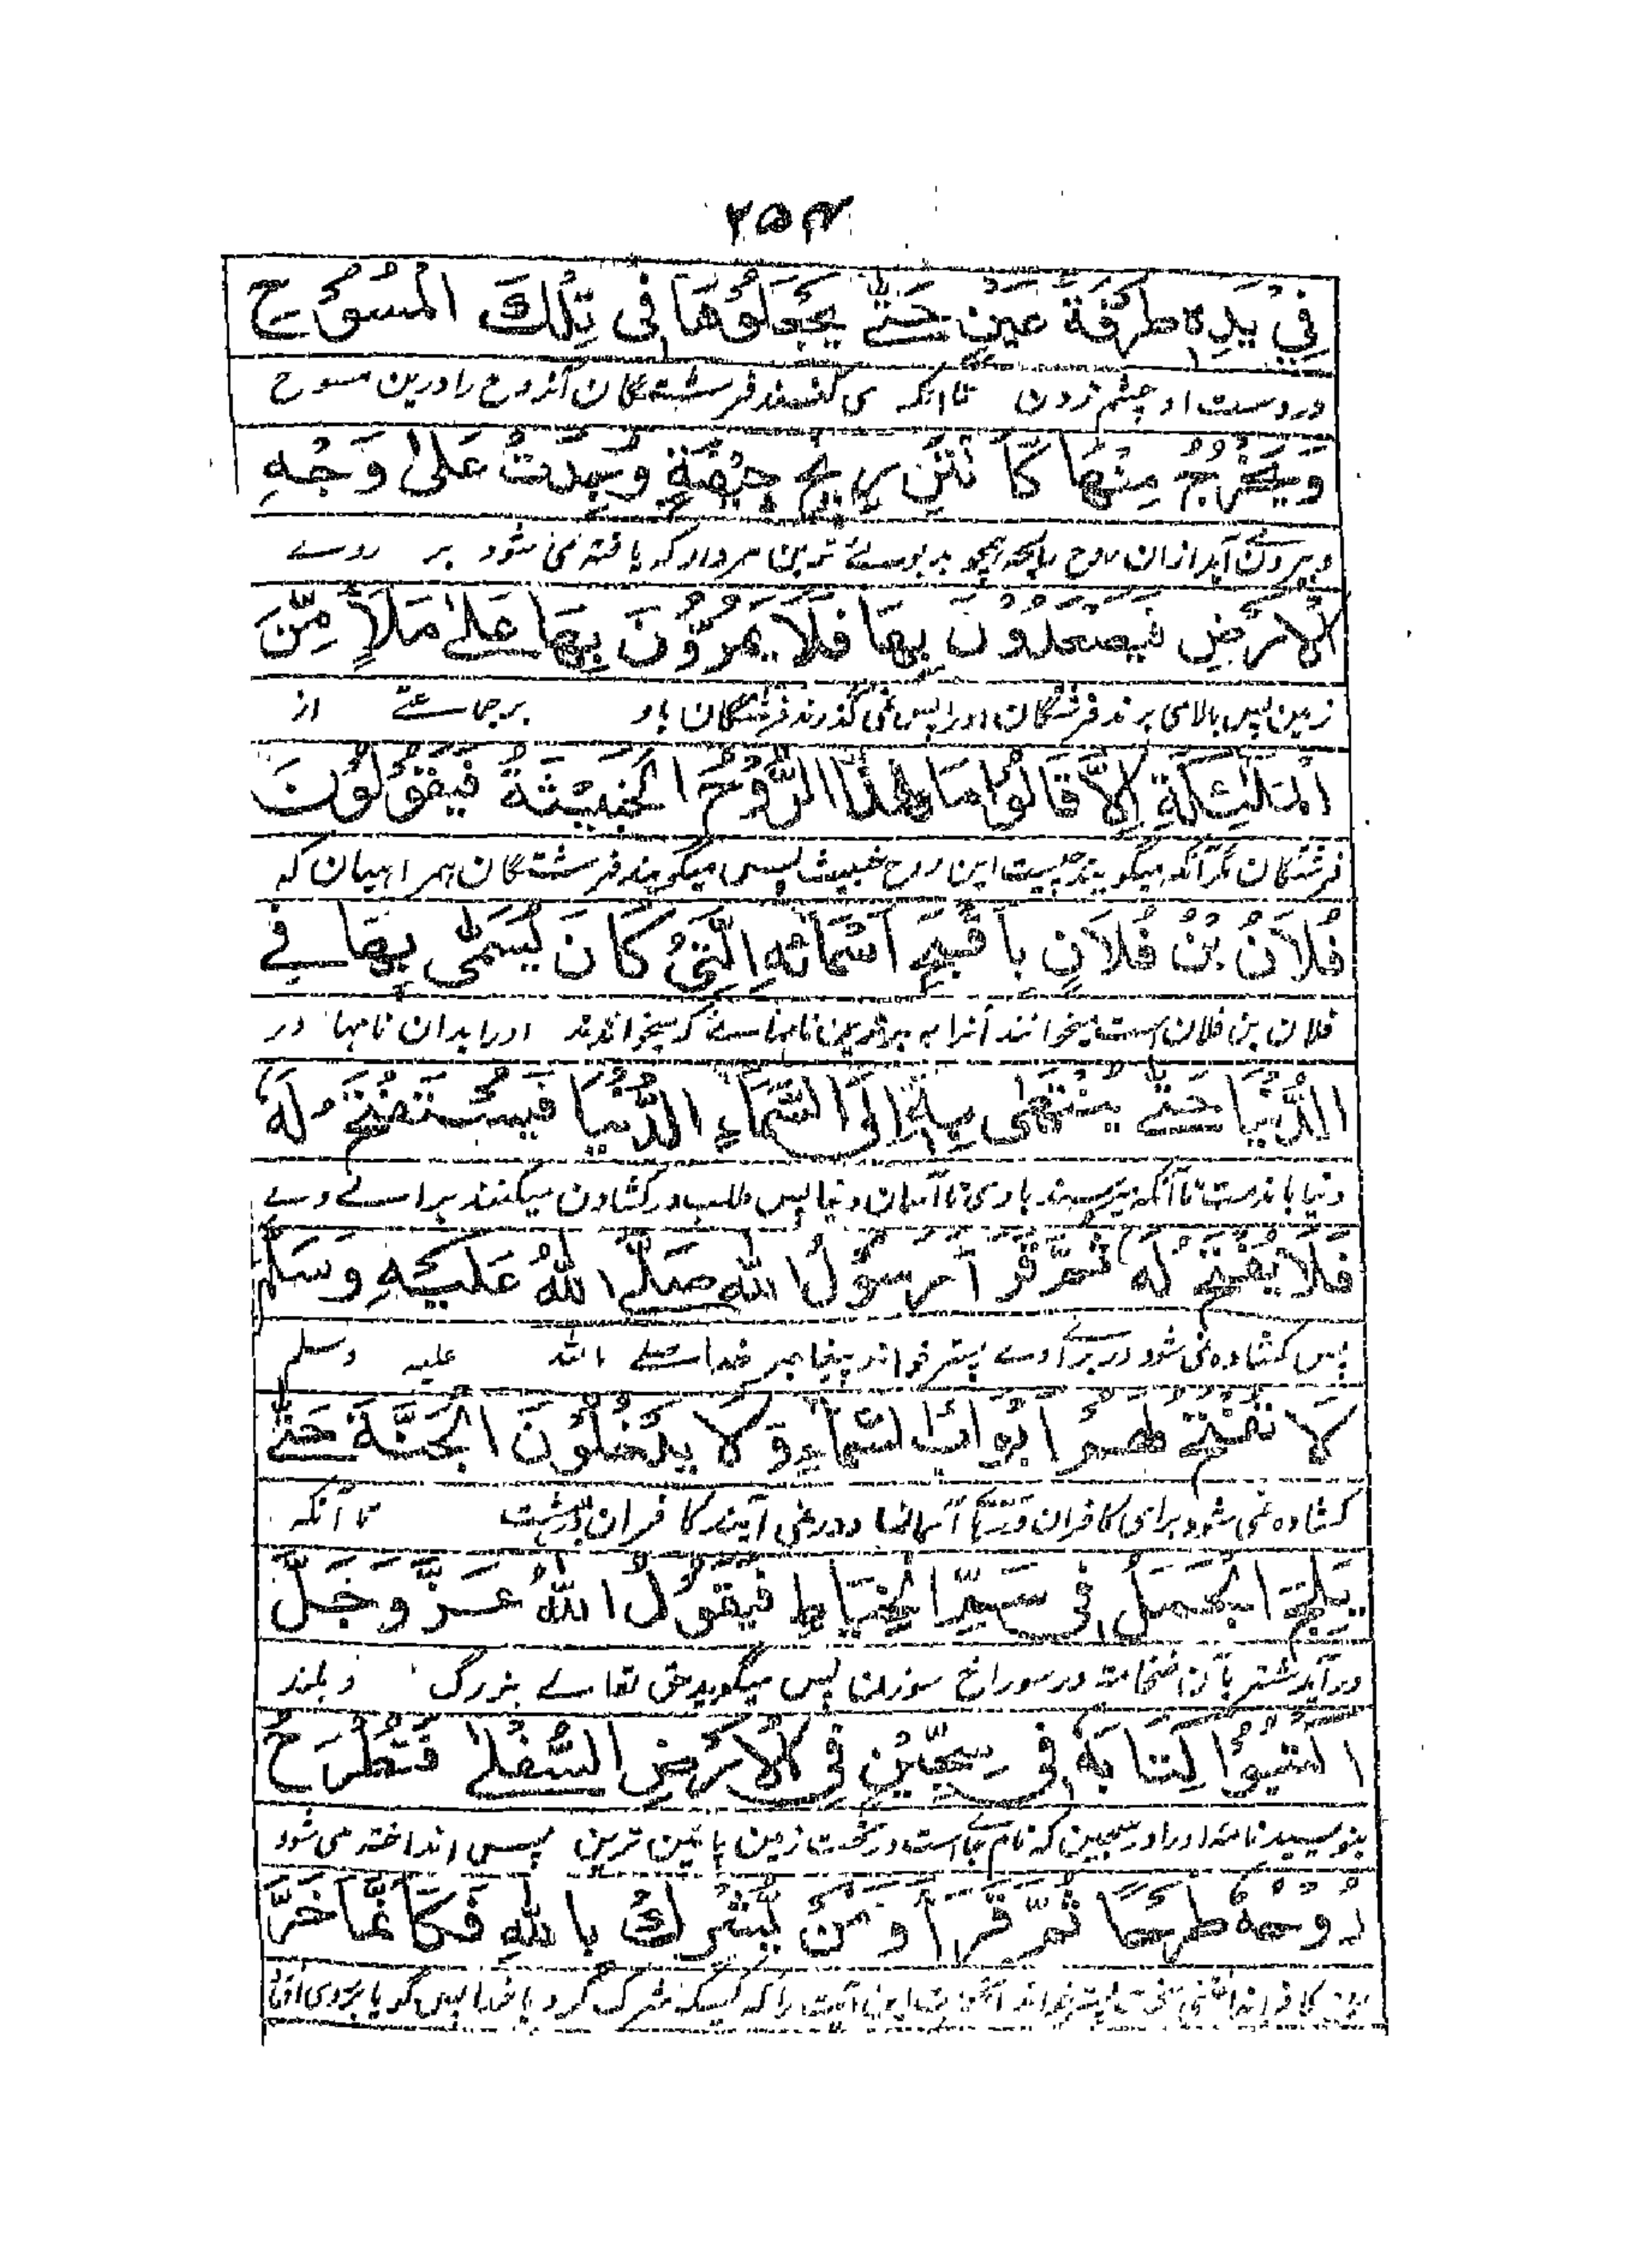 ۲۵۴
فِيْ يَدِهٖ طَرْفَةَ عَيْنٍ حَتّٰى يَجْعَلُوْهَا فِى تِلْكَ الْمُسُوْحِ
در دست او چشم زدن تا آنکه می کنند فرشتگان آنروح را درین مسوح
وَيَخْرُجُ مِنْهَا كَاَنْتَنِ رِيْحِ جِيْفَةٍ وُجِدَتْ عَلٰى وَجْهِ
و بیرون آید ازان روح رایحه همچو بدبوے ترین مردار که یافته می شود بر روے
الْاَرْضِ فَيَصْعَدُوْنَ بِهَا فَلَا يَمُرُّوْنَ بِهَا عَلٰے مَلَأٍ مِّنَ
زمین پس بالا می برند فرشتگان اورا پس نمی گذرند فرشتگان باو بر جماعتے از
الْمَلٰئِكَةِ اِلَّا قَالُوْا مَا هٰذَا الرُّوْحُ الْخَبِيْثَةُ فَيَقُوْلُوْنَ
فرشتگان مگر آنکه میگویند چیست این روح خبیث پس میگویند فرشتگان همراهیان که
فُلَانُ بْنُ فُلَانٍ بِاَقْبَحِ اَسْمَائِهِ الَّتِيْ كَانَ يُسَمّٰى بِهَا فِے
فلان بن فلان است میخوانند آنرا به بدترین نامهاے که میخواندند اورا بدان نامها در
الدُّنْيَا حَتّٰے يُنْتَهٰى بِهٖ اِلَى السَّمَاءِ الدُّنْيَا فَيُسْتَفْتَحُ لَهٗ
دنیا باندست تا آنکه میرسند باوی تا آسمان دنیا پس طلب در کشادن میکنند براے وے
فَلَا يُفْتَحُ لَهٗ ثُمَّ قَرَأَ رَسُوْلُ اللّٰهِ صَلَّے اللّٰهُ عَلَيْهِ وَسَلَّمَ
پس کشاده نمی شود در براے وے پستر خواند پیغامبر خدا صلے الله علیه وسلم
لَا تُفْتَحُ لَهُمْ اَبْوَابُ السَّمَاءِ وَلَا يَدْخُلُوْنَ الْجَنَّةَ حَتّٰے
کشاده نمی شود برای کافران درهاے آسمانها و در نمی آیند کافران در بهشت تا آنکه
يَلِجَ الْجَمَلُ فِى سَمِّ الْخِيَاطِ فَيَقُوْلُ اللّٰهُ عَزَّ وَجَلَّ
در آید شتر بآن ضخامت در سوراخ سوزن پس میگوید حق تعاے بزرگ و بلند
اكْتُبُوْا كِتَابَهٗ فِى سِجِّيْنٍ فِى الْاَرْضِ السُّفْلٰے فَتُطْرَحُ
بنویسید نامه اورا در سجین که نام جاے است در تحت زمین پائین ترین پس انداخته می شود
رُوْحُهٗ طَرْحًا ثُمَّ قَرَأَ وَمَنْ يُّشْرِكْ بِاللّٰهِ فَكَاَنَّمَا خَرَّ
کافر پستر خواند این آیت را که کسیکه شرک کرد با خدا پس گویا